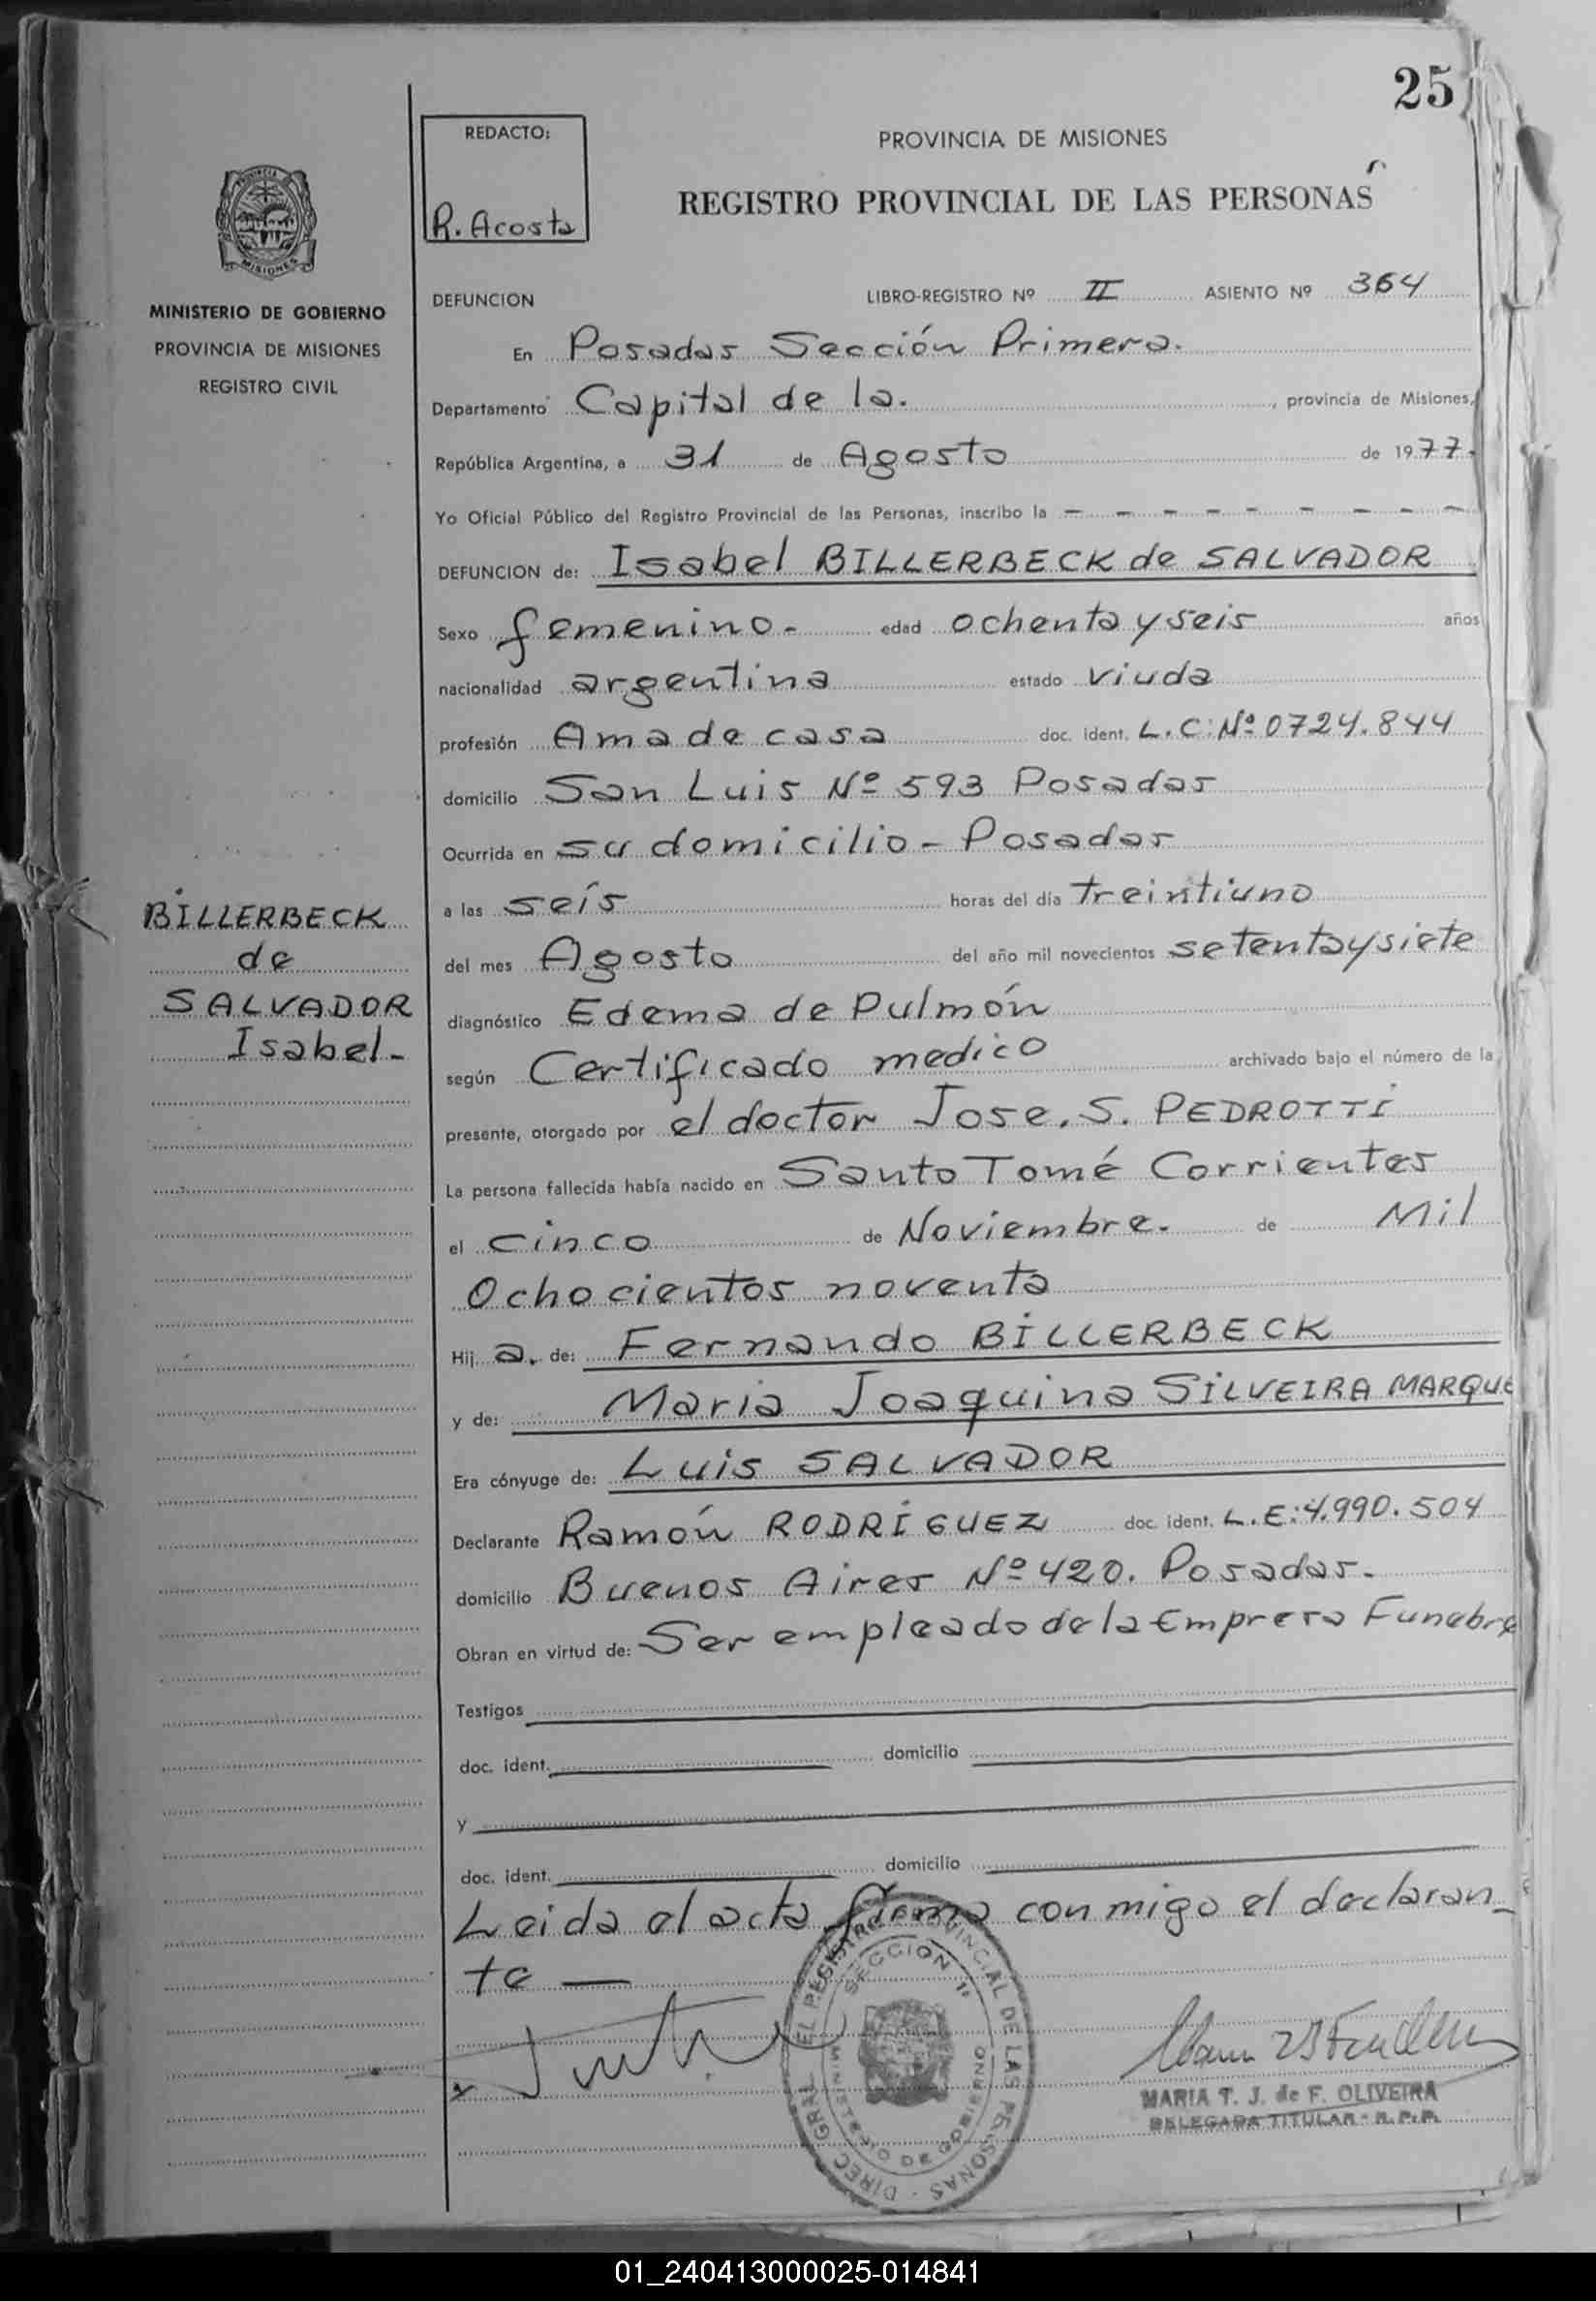 25
REDACTO:
R. Acosta
PROVINCIA DE MISIONES
REGISTRO PROVINCIAL DE LAS PERSONAS
PROVINCIA
MISIONES
MINISTERIO DE GOBIERNO
PROVINCIA DE MISIONES
REGISTRO CIVIL
DEFUNCION LIBRO-REGISTRO Nº II ASIENTO Nº 364
En Posadas Sección Primera.
Departamento Capital de la. , provincia de Misiones,
República Argentina, a 31 de Agosto de 1977.
Yo Oficial Público del Registro Provincial de las Personas, inscribo la - - - - - - - - -
DEFUNCION de: Isabel BILLERBECK de SALVADOR
Sexo femenino- edad ochenta y seis años
nacionalidad argentina estado viuda
profesión Ama de casa doc. ident. L.C:Nº 0724.844
domicilio San Luis Nº 593 Posadas
Ocurrida en su domicilio - Posadas
a las seís horas del día treintiuno
del mes Agosto del año mil novecientos setentaysiete
diagnóstico Edema de Pulmón
según Certificado medico archivado bajo el número de la
presente, otorgado por el doctor Jose. S. PEDROTTi
La persona fallecida había nacido en Santo Tomé Corrientes
el cinco de Noviembre. de Mil
Ochocientos noventa
Hij a. de: Fernando BiLLERBECK
y de: Maria Joaquina SiLVEIRA MARQUE
Era cónyuge de: Luis SALVADOR
Declarante Ramón RODRÍGUEZ doc. ident. L.E:4.990.504
domicilio Buenos Aires Nº 420. Posadas.
Obran en virtud de: Ser empleado de la Empresa Funebre
Testigos
doc. ident. domicilio
y
doc. ident. domicilio
Leida el acta firma conmigo el declaran-
te —
BiLLERBECK
de
SALVADOR
Isabel-
DIREC. GRAL. EL REGISTRO PROVINCIAL DE LAS PERSONAS
SECCION 1ª
MINISTERIO DE GOBIERNO
MARIA T. J. de F. OLIVEIRA
DELEGADA TITULAR - R.P.P.
01_240413000025-014841